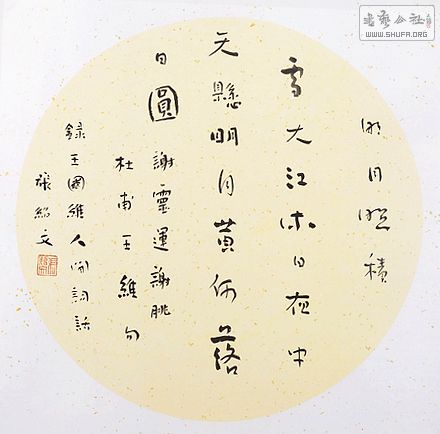 書藝公社
WWW.SHUFA.ORG
明月照積
雪大江流日夜中
天懸明月黃河落
日圓謝靈運謝朓
杜甫王維句
録王國維人間詞話
張紹文